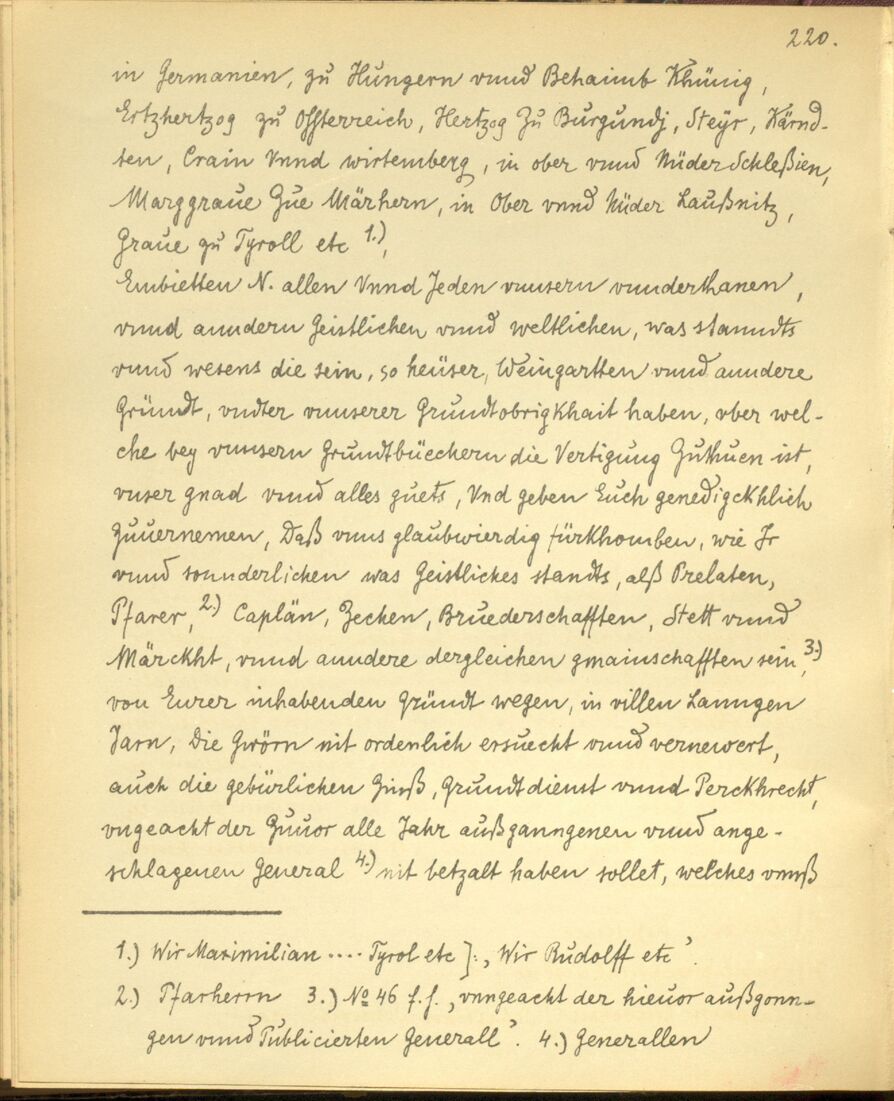 220.
in Germanien, zu Hungern vnnd Behaimb Khünig,
Ertzhertzog zu Ossterreich, Hertzog Zu Burgundj, Steyr, Kärnd-
ten, Crain Vnnd wirtemberg, in ober vnnd NüderSchleßien,
Marggraue Zue Märhern, in Ober vnnd Nüder Laußnitz,
Graue zu Tyroll etc 1.),
Embietten N. allen Vnnd Jeden vnnsern vnnderthanen,
vnnd anndern Geistlichen vnnd weltlichen, was stanndts
vnnd wesens die sein, so heüser, Weingartten vnnd anndere
Gründt, vndter vnnserer Grundtobrigkhait haben, vber wel-
che bey vnnsern Grundtbüecchern die Vertigung Zuthuen ist,
vnser gnad vnnd alles guets, Vnd geben Euch genedigckhlich
zuuernemen, Daß vnns glaubwierdig fürkhomben, wie Jr
vnnd sonnderlichen was Geistliches standts, alß Prelaten,
Pfarer, 2.) Caplän, Zechen, Bruederschafften, Stett vnnd
Märckht, vnnd anndere dergleichen gmainschafften sein, 3.)
von Eurer inhabenden Gründt wegen, in villen Lanngen
Jarn, Die Gwörn nit ordenlich ersuecht vnnd vernewert,
auch die gebürlichen Zinß, Grundtdienst vnnd Perckhrecht,
vngeacht der Zuuor alle Jahr außganngenen vnnd ange-
schlagenen General 4.) nit betzalt haben sollet, welches vnnß
1.) Wir Maximilian .... Tyrol etc ]: „Wir Rudolff etc”.
2.) Pfarherrn 3.) No 46 f.f. „vnngeacht der hieuor außgonn-
gen vnnd Publicierten Generall”. 4.) Generallen